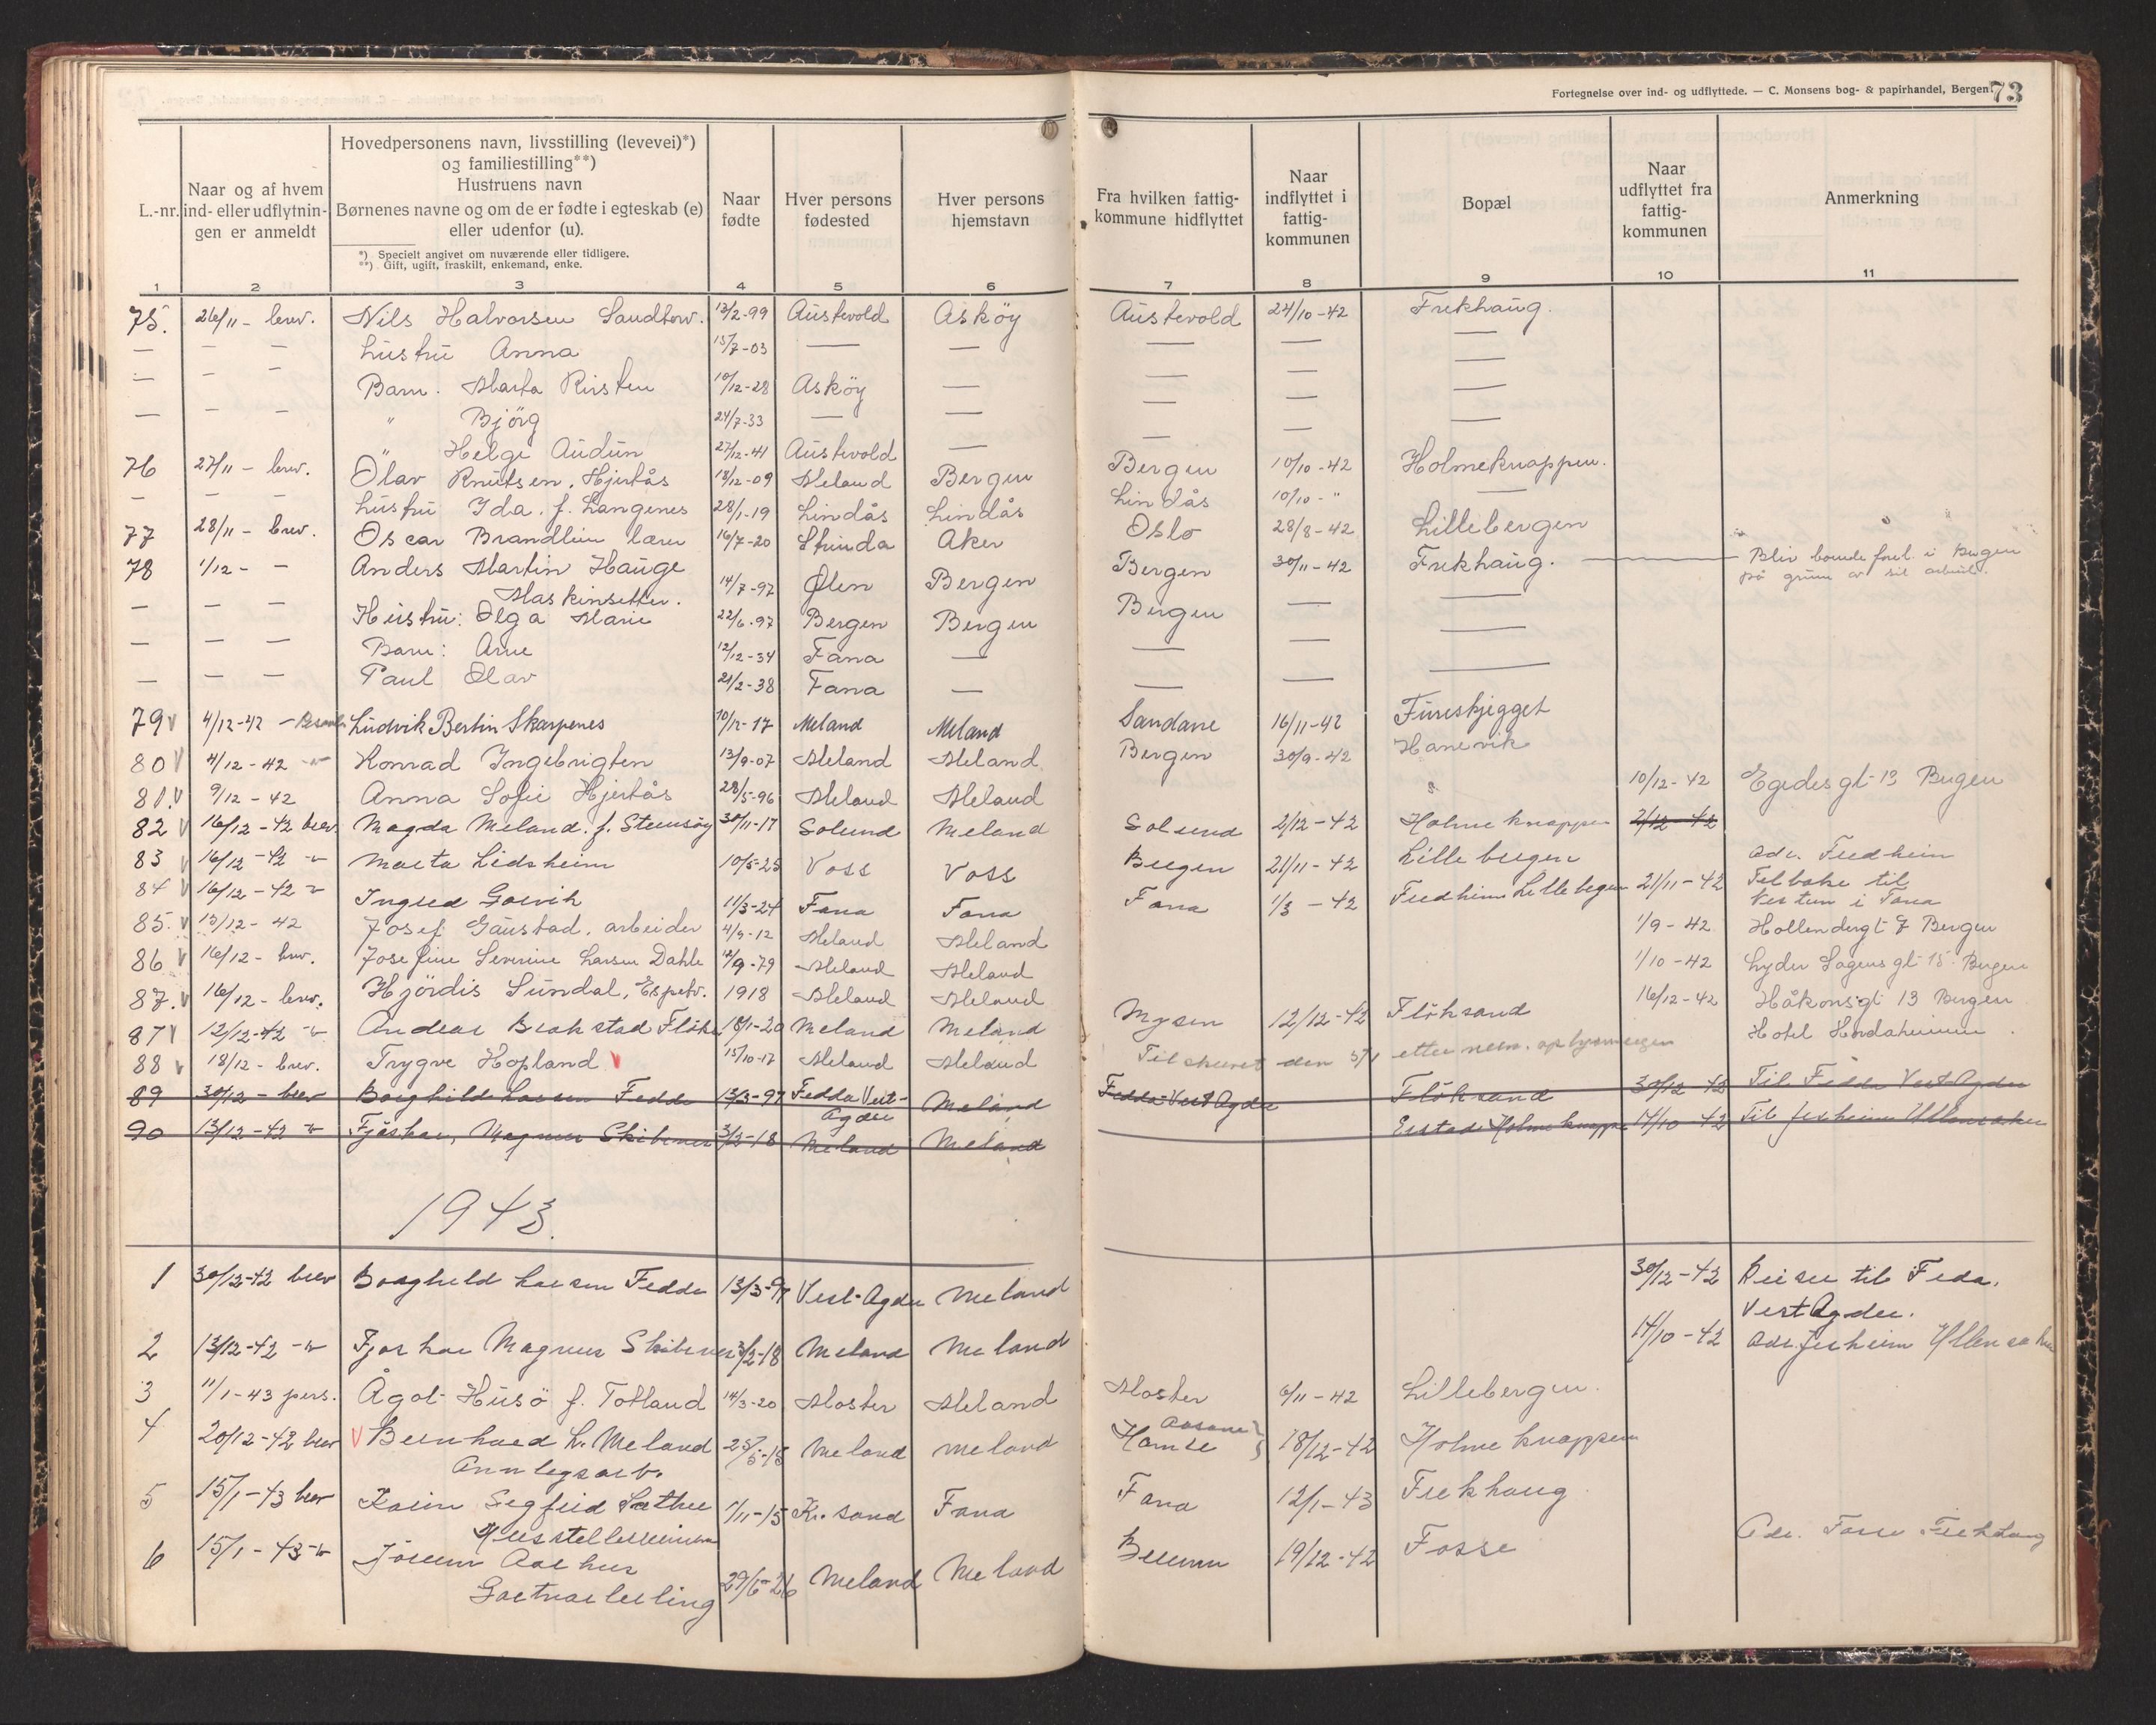 Fortegnelse over ind- og udflyttede. — C. Monsens bog- & papirhandel, Bergen. 73
L.-nr.
Naar og af hvem ind- eller udflytningen er anmeldt
Hovedpersonens navn, livsstilling (levevei)*)
og familiestilling**)
Hustruens navn
Børnenes navne og om de er fødte i egteskab (e)
eller udenfor (u).
*) Specielt angivet om nuværende eller tidligere.
**) Gift, ugift, fraskilt, enkemand, enke.
Naar fødte
Hver persons fødested
Hver persons hjemstavn
Fra hvilken fattig-kommune hidflyttet
Naar indflyttet i fattig-kommunen
Bopæl
Naar udflyttet fra fattig-kommunen
Anmerkning
1 2 3 4 5 6 7 8 9 10 11
75. 26/11 - brev. Nils Halvorsen 13/2-99 Austevold Asköy Austevold 24/10-42 Frekhaug.
— — — hustru Anna 15/7-03 — — — — —
— — — Barn. Marta Kirsten 10/12-28 Asköy — — — —
— — — " Björg 24/7-33 — — — — —
" Helge Audun 27/12-41 Austevold — — —
76 27/11 - brev. Olav Knutsen Hjertås 18/12-09 Meland Bergen Bergen 10/10-42 Holmeknappen.
— — — hustru Ida f. Langenes 28/1-19 Lindås Lindås Lindås 10/10-" —
77 28/11 - brev. Oscar Brandlien lærer 16/7-20 Strinda Aker Oslo 28/8-42 Lillebergen
78 1/12- - Anders Martin Hauge 14/7-97 Ølen Bergen Bergen 30/11-42 Frekhaug. — Blir boende forel. i Bergen
Maskinsetter. på grunn av sit arbeid.
— — — Hustru: Olga Marie 22/6-97 Bergen Bergen Bergen — —
— — — Barn: Arne 12/12-34 Fana — — — —
— — — Paul Olav 21/2-38 Fana — — — —
79 v 4/12-42 - Ludvik Bertin Skarpenes 10/12-17 Meland Meland Sandane 16/11-42 Fureskjegget
80 v 4/12-42 -"- Konrad Ingebrigten 13/9-07 Meland Meland Bergen 30/9-42 Hanevik
81. v 9/12-42 Anna Sofie Hjertås 28/5-96 Meland Meland 10/12-42 Egedes gt 13 Bergen
82 v 16/12-42 brev Magda Meland. f. Steensøy 30/11-17 Solund Meland Solund 2/12-42 Holmeknappen 2/12-42
83 v 16/12-42 -"- Marta Lidsheim 10/5-23 Voss Voss Bergen 21/11-42 Lillebergen adr. Fredheim
84 v 16/12-42 -"- Ingrid Gjervik 11/3-24 Fana Fana Fana 1/3-42 Fredheim Lillebergen 21/11-42 Tilbake til
Nestun i Fana
85. v 13/12-42 Josef Gaustad, arbeider 4/9-12 Meland Meland 1/9-42 Hollendergt 7 Bergen
86 v 16/12- brev. Josefine Severine Larsen Dahle 12/9-79 Meland Meland 1/10-42 Lyder Sagens gt 15 Bergen
87. v 16/12- brev. Hjördis Sundal, Espetv. 1918 Meland Meland 16/12-42 Håkonsgt 13 Bergen
87 v 12/12-42 -"- Andrae Brakstad 18/1-20 Meland Meland Mysen 12/12-42 Flöksand Hotel Hordaheimen.
88 v 18/12- brev. Trygve Hopland v 15/10-17 Meland Meland Tilskrevet den 5/1 etter
89 30/12- brev Borghild Larsen Fedde 13/3-97 Fedda Vest-Agder Meland Fedda-Vest Agder Flöksand 30/12-42 Til Fedda Vest Agder
90 13/12-42 -"- Fjøshar, Magnus Skibenes 3/2-18 Meland Meland Holmeknappen 14/10-42 Til Jesheim Ullensaker
1943.
1 30/12-42 brev Borghild Larsen Fedde 13/3-97 Vest-Agder Meland 30/12-42 Reiser til Feda.
Vest Agder.
2 13/12-42 -"- Magnus Skibenes 3/2-18 Meland Meland 14/10-42 adr. Jesheim Ullensaker
3 11/1-43 pers. Ågot Husö f. Totland 14/3-20 Moster Meland Moster 6/11-42 Lillebergen.
4 20/12-42 brev v Bernhard L. Meland 25/5-15 Meland Meland 18/12-42 Holmeknappen
Annlegsarb.
5 15/1-43 brev Karin Segfrid Sæther 1/11-15 Kr.sand Fana Fana 12/1-43 Frekhaug
6 15/1-43 -"- 29/6-26 Meland Meland 19/12-42 Fosse Adr. Fosse Frekhaug
Gartnerlærling